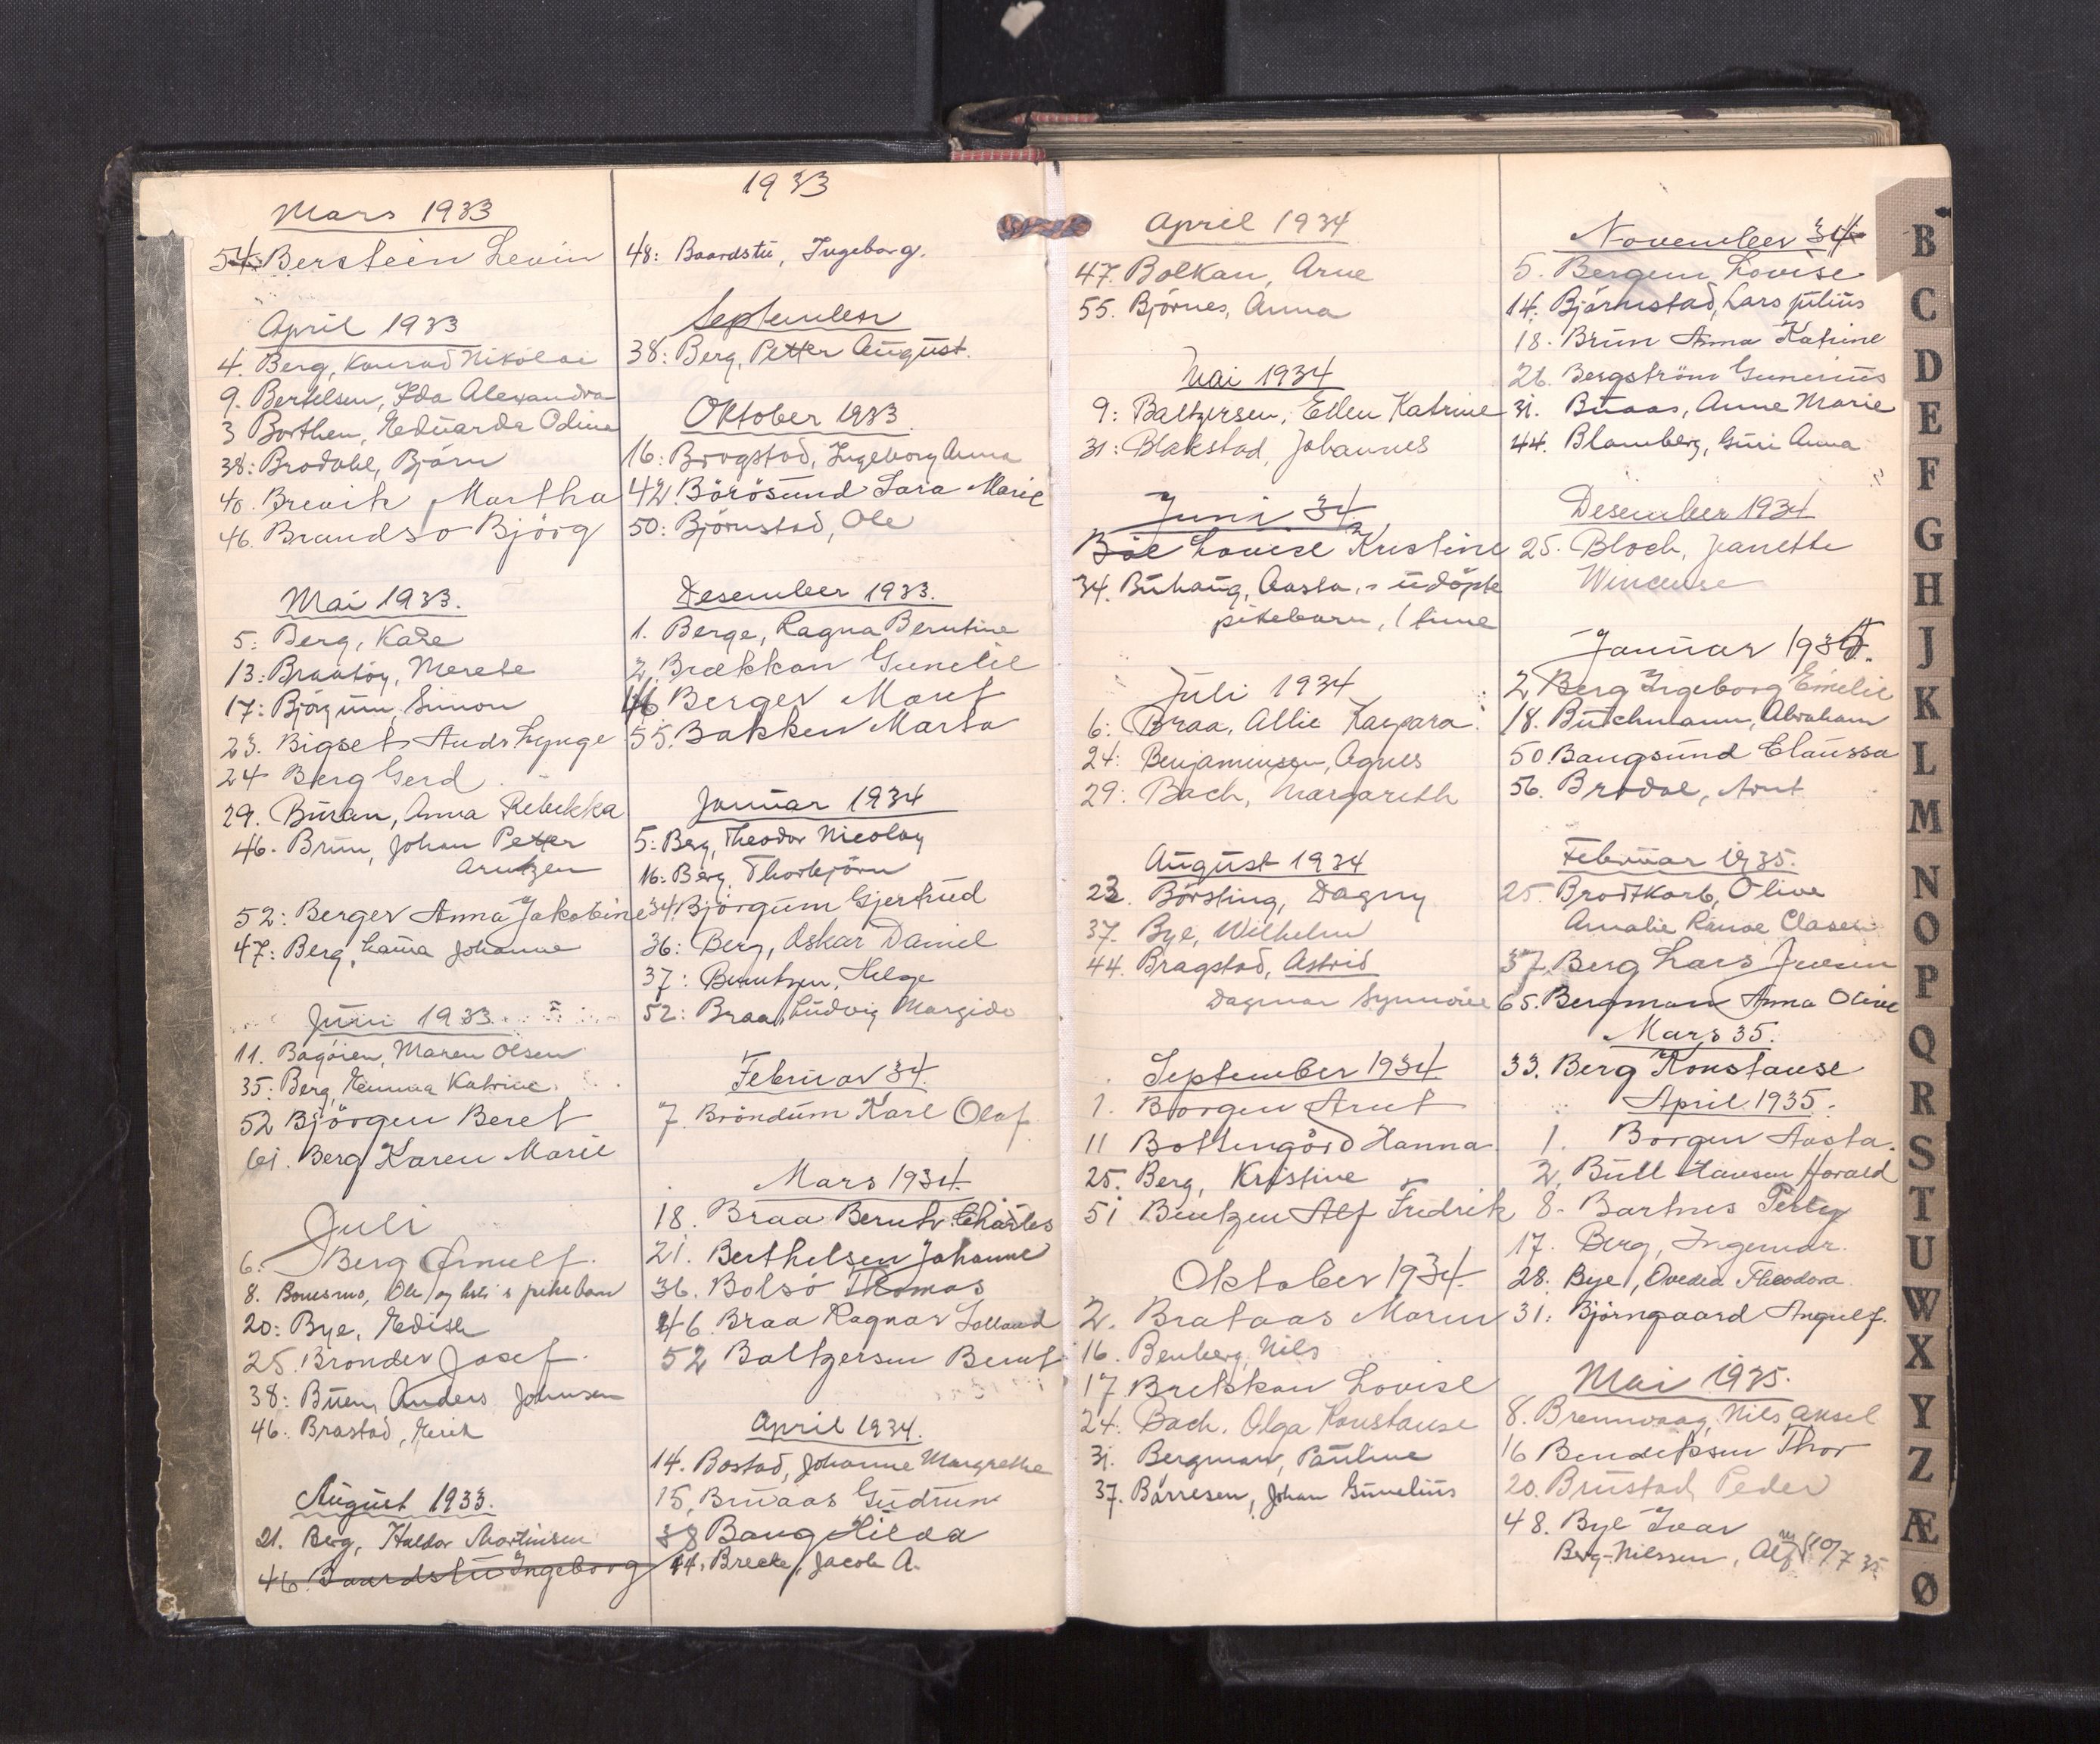 Mars 1933
54: Berstein Levin
April 1933
4. Berg, Konrad Nikolai
9. Bertelsen, Ida Alexandra
3 Borthen, Eduarda Odina
38: Brodahl, Björn
40. Brevik, Martha
46. Brandsø Björg
Mai 1933.
5: Berg, Kaare
13: Braatöy, Merete
17: Björgum, Simon
23. Bigset Lynge
24 Berg Gerd
29. Buran, Anna Rebekka
46. Brun, Johan Petter
Arntzen
52: Berger Anna Jakobine
47: Berg, Laura Johanne
Juni 1933.
11. Bagöien, Maren Olsen
35: Berg, Emma Katrine
52 Björgen Beret
61. Berg Karen Marie
Juli
6. Berg Arnulf.
8. Bonesmo, Ole og pikebarn
20: Bye, Edith
25. Bronder Josef.
38: Buen, Anders Johnsen
46. Brastad, Erik
August 1933.
21. Berg, Haldor Martinsen
46. Baardstu Ingeborg
1933
48: Baardstu, Ingeborg.
September
38: Berg, Petter August.
Oktober 1933.
16: Brogstad, Ingeborg Anna
42. Börösund Sara Marie
50: Björnstad, Ole
Desember 1933.
1. Berge, Ragna Berntine
2. Brækkan Gunelie
46 Berger Maret
55. Bakken Marta
Januar 1934
5: Berg, Theodor Nicolay
16: Berg, Thorbjörn
34. Björgum Gjertrud
36: Berg, Oskar Daniel
37: Berntzen, Helge
52: Braa, Ludvig Margido
Februar 34.
7. Bröndum Karl Olaf
Mars 1934.
18. Braa Bernt Charles
21. Berthelsen Johanne
36. Bolsö Thomas
46. Braa Ragnar Solland
52 Baltzersen Bernt
April 1934.
14. Bostad, Johanne Margrethe
15. Bruaas Gudrun
38 Bang Hilda
44. Brecke, Jacob A.
April 1934
47. Bolkan, Arne
55. Björnes, Anna
Mai 1934
9: Baltzersen, Ellen Katrine
31: Blakstad, Johannes
Juni 34.
Böe Lovise Kristine
34. Buhaug, Aasta, s udöpte
pikebarn, 1 time
Juli 1934
6: Braa, Allie Kaspara.
24: Benjaminsen, Agnes
29: Bach, Margareth
August 1934
23. Börsting, Dagny
37. Bye, Wilhelm
44. Bragstad, Astrid
Dagmar Synnöve
September 1934
1. Borgen Arnt
11 Bottengård Hanna
25. Berg, Kristine
51 Bentzen Alf Fredrik
Oktober 1934.
2. Brataas Maren
16. Benberg, Nils
17. Brekkan Lovise
24. Bach. Olga Konstanse
31. Bergman, Pauline
37. Börresen, Johan Gunelius
November 34
5. Bergem Lovise
14. Björnstad, Lars Julius
18. Brun Anna Katrine
26. Bergström Gunerius
31. Buaas, Anne Marie
44. Blomberg, Guri Anna
Desember 1934
25. Bloch, Jeanette
Wincense
Januar 1935.
2 Berg Ingeborg Emelie
18. Buchmann, Abraham
50. Bangsund Claussa
56. Brodal, Arnt
Februar 1935.
25. Brodtkorb, Olive
Amalie Claser
37. Berg Lars Jensen
65. Bergman Anna Olive
Mars 35.
33. Berg Konstanse
April 1935.
1. Borgen Aasta.
2. Bull Hansen Harald
8. Bartnes Petter
17. Berg, Ingemar.
28. Bye, Ovedia Theodora
31. Björngaard Angulf.
Mai 1935.
8. Brennvaag, Nils Aksel
16 Bendiksen Thor
20. Brustad, Peder
48. Bye Ivar
Berg-Nilssen, Alf 10/7 35
B
C
D
E
F
G
H
J
K
L
M
N
O
P
Q
R
S
T
U
W
X
Y
Z
Æ
Ø